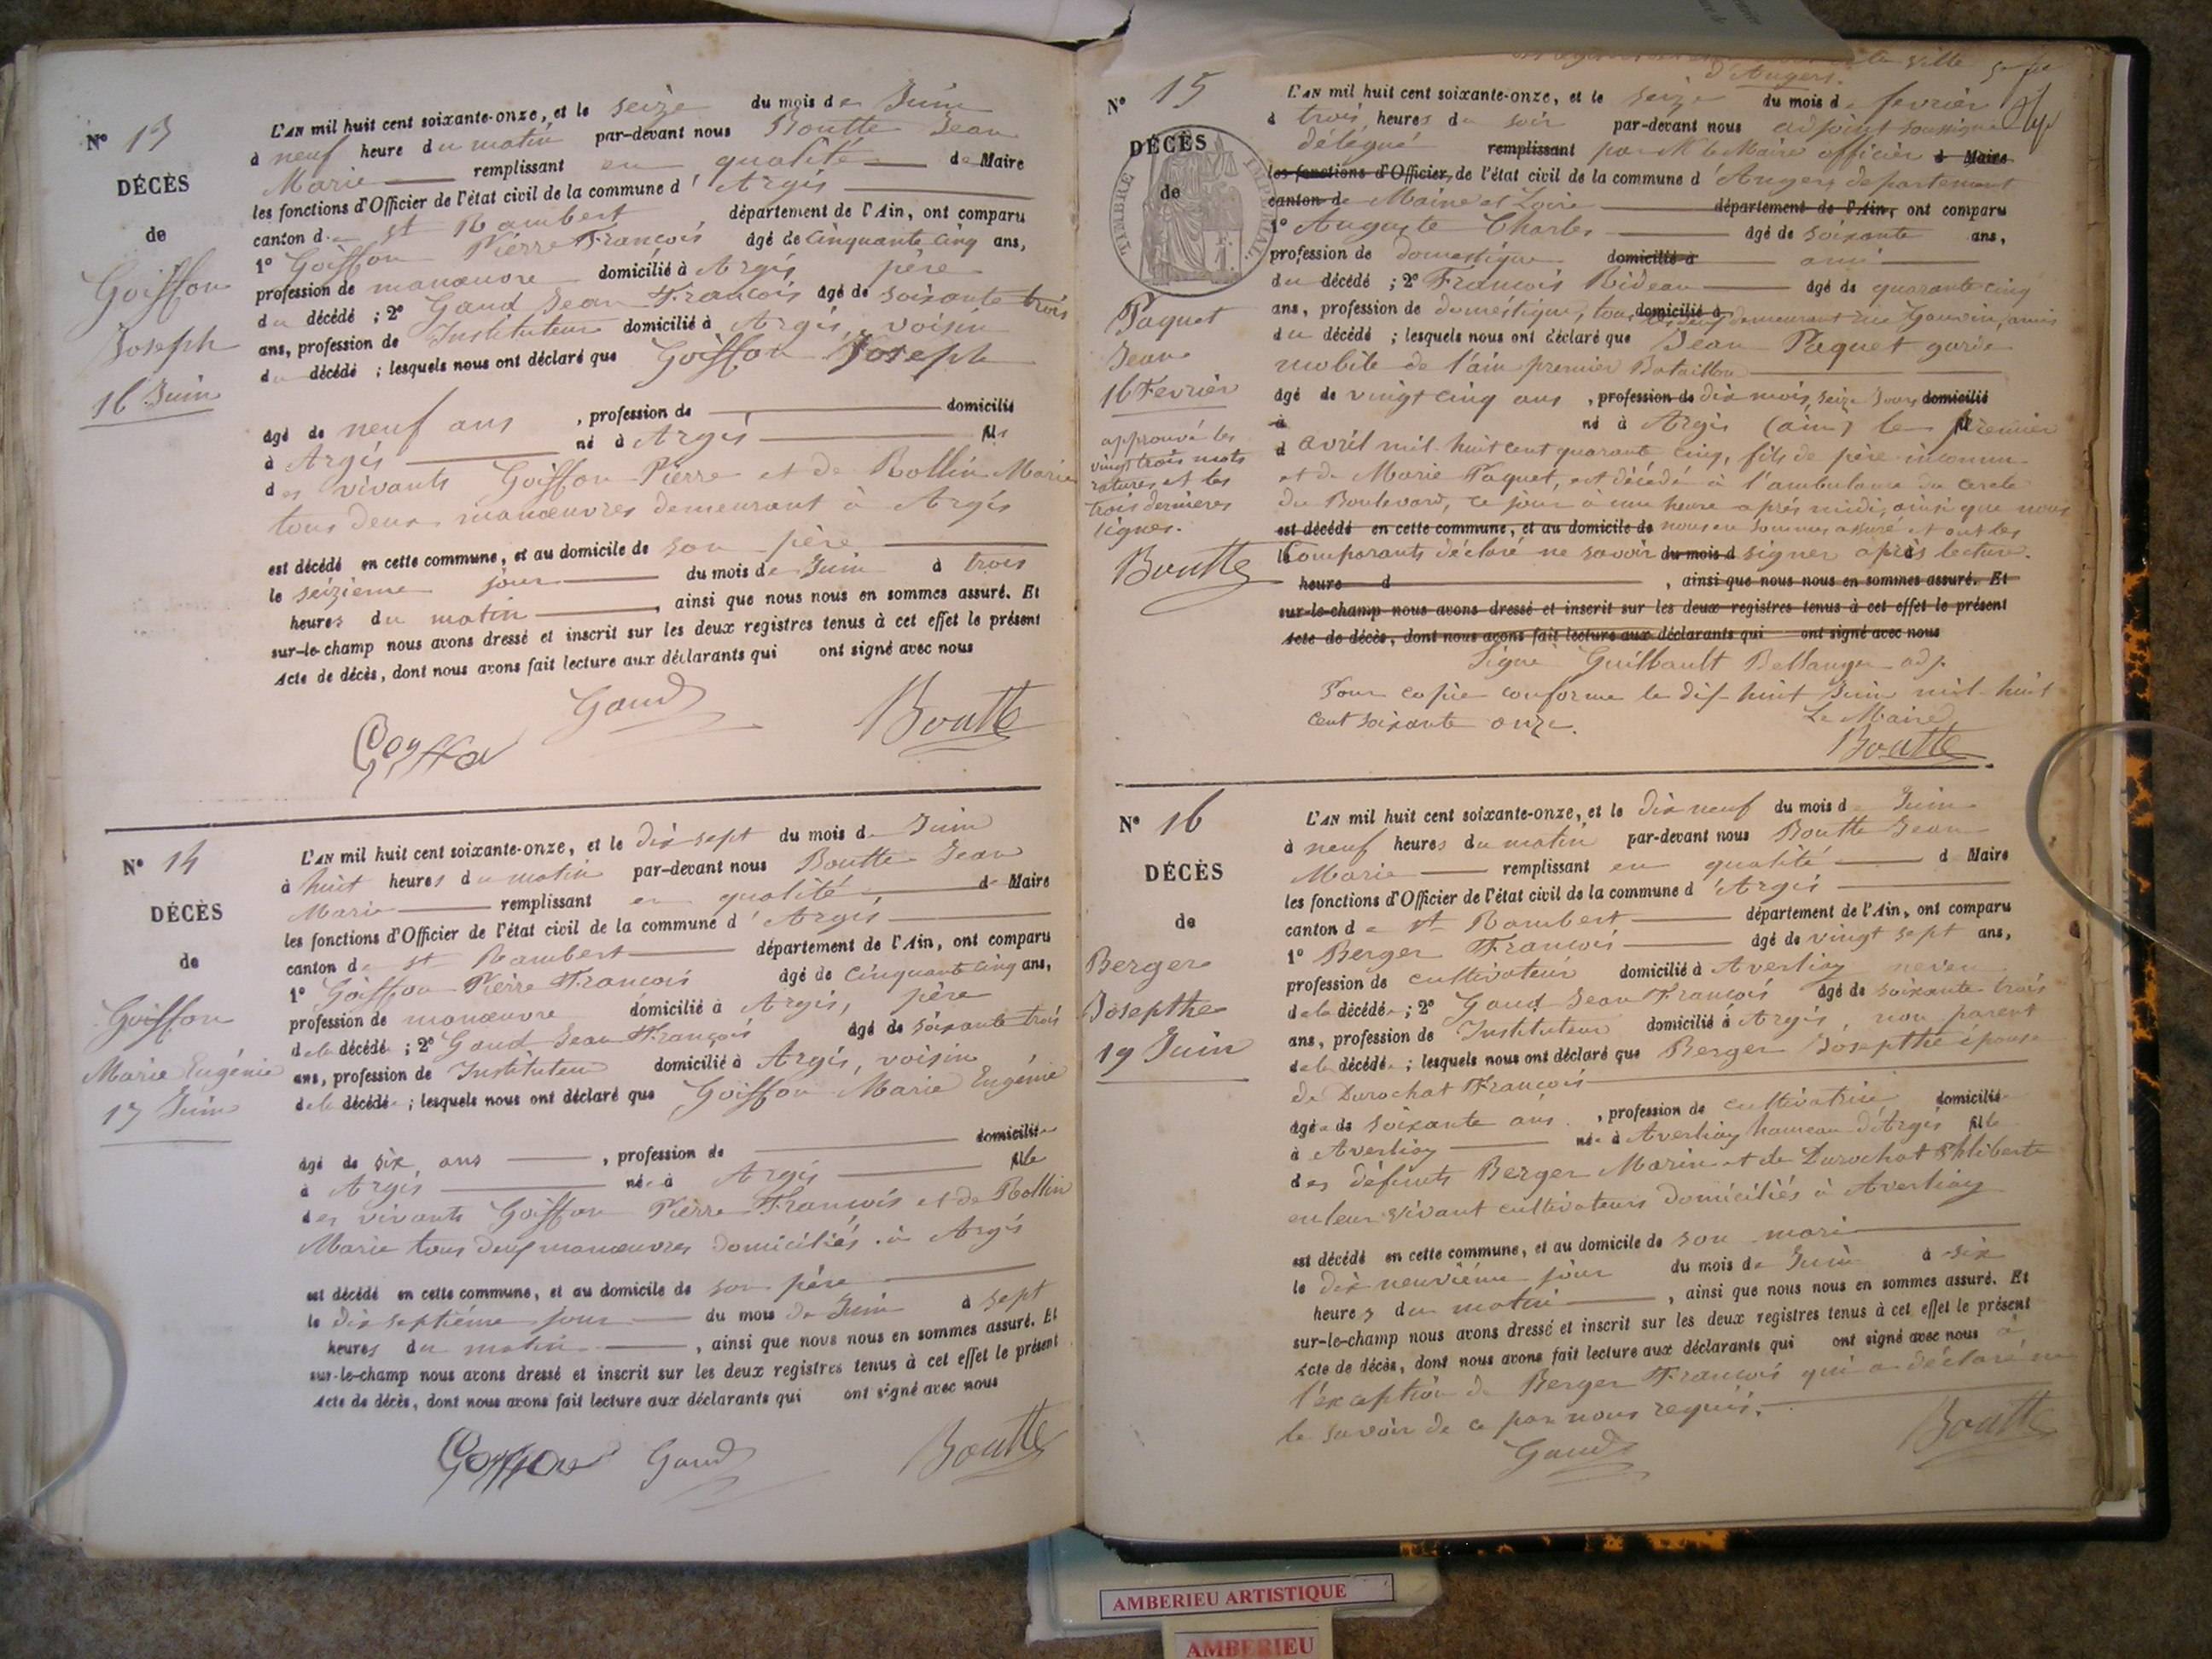 N° 13
DÉCÈS
de
Goiffon
Joseph
16 Juin
L'AN mil huit cent soixante-onze, et le seize du mois de Juin
à neuf heure du matin par-devant nous Boutte Jean
Marie remplissant en qualité de Maire
les fonctions d'Officier de l'état civil de la commune d'Argis
canton de st Rambert, département de l'Ain, ont comparu
1° Goiffon Pierre François âgé de Cinquante Cinq ans,
profession de manœuvre domicilié à Argis père
du décédé ; 2° Gaud Jean François âgé de soixante trois
ans, profession de Instituteur domicilié à Argis, voisin
du décédé ; lesquels nous ont déclaré que Goiffon Joseph
âgé de neuf ans, profession de domicilié
à Argis né à Argis fils
des vivants Goiffon Pierre et de Rollin Marie
tous deux manœuvres demeurant à Argis
est décédé en cette commune, et au domicile de son père
le seizième jour du mois de Juin à trois
heures du matin, ainsi que nous nous en sommes assuré. Et
sur-le-champ nous avons dressé et inscrit sur les deux registres tenus à cet effet le présent
acte de décès, dont nous avons fait lecture aux déclarants qui ont signé avec nous
Gaud
Boutte
N° 14
DÉCÈS
de
Goiffon
Marie Eugénie
17 Juin
L'AN mil huit cent soixante-onze, et le dix sept du mois de Juin
à huit heures du matin par-devant nous Boutte Jean
Marie remplissant en qualité de Maire
les fonctions d'Officier de l'état civil de la commune d'Argis
canton de st Rambert département de l'Ain, ont comparu
1° Goiffon Pierre François âgé de Cinquante Cinq ans,
profession de manœuvre domicilié à Argis, père
de la décédée ; 2° Gaud Jean François âgé de soixante trois
ans, profession de Instituteur domicilié à Argis, voisin
de la décédée ; lesquels nous ont déclaré que Goiffon Marie Eugénie
âgé de six ans, profession de domiciliée
à Argis née à Argis fille
des vivants Goiffon Pierre François et de Rollin
Marie tous deux manœuvres domiciliés à Argis
est décédé en cette commune, et au domicile de son père
le dix septième jour du mois de Juin à sept
heures du matin, ainsi que nous nous en sommes assuré. Et
sur-le-champ nous avons dressé et inscrit sur les deux registres tenus à cet effet le présent
acte de décès, dont nous avons fait lecture aux déclarants qui ont signé avec nous
Gaud
Boutte
ville
d'Angers.
N° 15
DÉCÈS
de
TIMBRE IMPÉRIAL.
Paquet
Jean
16 Fevrier
approuvé les
vingt trois mots
ratures et les
trois dernières
lignes.
Boutte
L'AN mil huit cent soixante-onze, et le seize du mois de fevrier
à trois heures du soir par-devant nous adjoint soussigné
délégué remplissant par Mr le Maire officier d Maire
les fonctions d'Officier, de l'état civil de la commune d'Angers departement
canton de Maine et Loire département de l'Ain, ont comparu
1° Auguste Charles âgé de soixante ans,
profession de domestique domicilié à ami
du décédé ; 2° François Bideau âgé de quarante cinq
ans, profession de domestique, tous domicilié à les deux demeurant rue amis
du décédé ; lesquels nous ont déclaré que Jean Paquet garde
mobile de l'ain premier Bataillon
âgé de vingt cinq ans, profession de dix mois, seize jours domicilié
à né à Argis (ain) le premier
d avril mil huit cent quarante cinq, fils de père inconnu
et de Marie Paquet, est décédé à l'ambulance du cercle
du Boulevard, ce jour à une heure après midi, ainsi que nous
est décédé en cette commune, et au domicile de nous en sommes assuré et ont les
Comparants déclaré ne savoir du mois d signer après lecture.
heure d, ainsi que nous nous en sommes assuré. Et
sur-le-champ nous avons dressé et inscrit sur les deux registres tenus à cet effet le présent
acte de décès, dont nous avons fait lecture aux déclarants qui ont signé avec nous
Signé Guilbault Bellanger adj.
Pour copie conforme le dix huit Juin mil huit
cent soixante onze. Le Maire
Boutte
N° 16
DÉCÈS
de
Berger
Josepthe
19 Juin
L'AN mil huit cent soixante-onze, et le dix neuf du mois de Juin
à neuf heures du matin par-devant nous Boutte Jean
Marie remplissant en qualité d Maire
les fonctions d'Officier de l'état civil de la commune d'Argis
canton de st Rambert département de l'Ain, ont comparu
1° Berger François âgé de vingt sept ans,
profession de cultivateur domicilié à Averliaz neveu
de la décédée ; 2° Gaud Jean François âgé de soixante trois
ans, profession de Instituteur domicilié à Argis, non parent
de la décédée ; lesquels nous ont déclaré que Berger Josepthe épouse
de Durochat François
âgée de soixante ans, profession de cultivatrice domiciliée
à Averliaz née à Averliaz hameau d'Argis fille
des défunts Berger Marin et de Durochat Philiberte
en leur vivant cultivateurs domiciliés à Averliaz
est décédé en cette commune, et au domicile de son mari
le dix neuvième jour du mois de Juin à six
heures du matin, ainsi que nous nous en sommes assuré. Et
sur-le-champ nous avons dressé et inscrit sur les deux registres tenus à cet effet le présent
acte de décès, dont nous avons fait lecture aux déclarants qui ont signé avec nous à
l'exception de Berger François qui a déclaré ne
le savoir de ce par nous requis.
Gaud
Boutte
AMBERIEU ARTISTIQUE
AMBERIEU